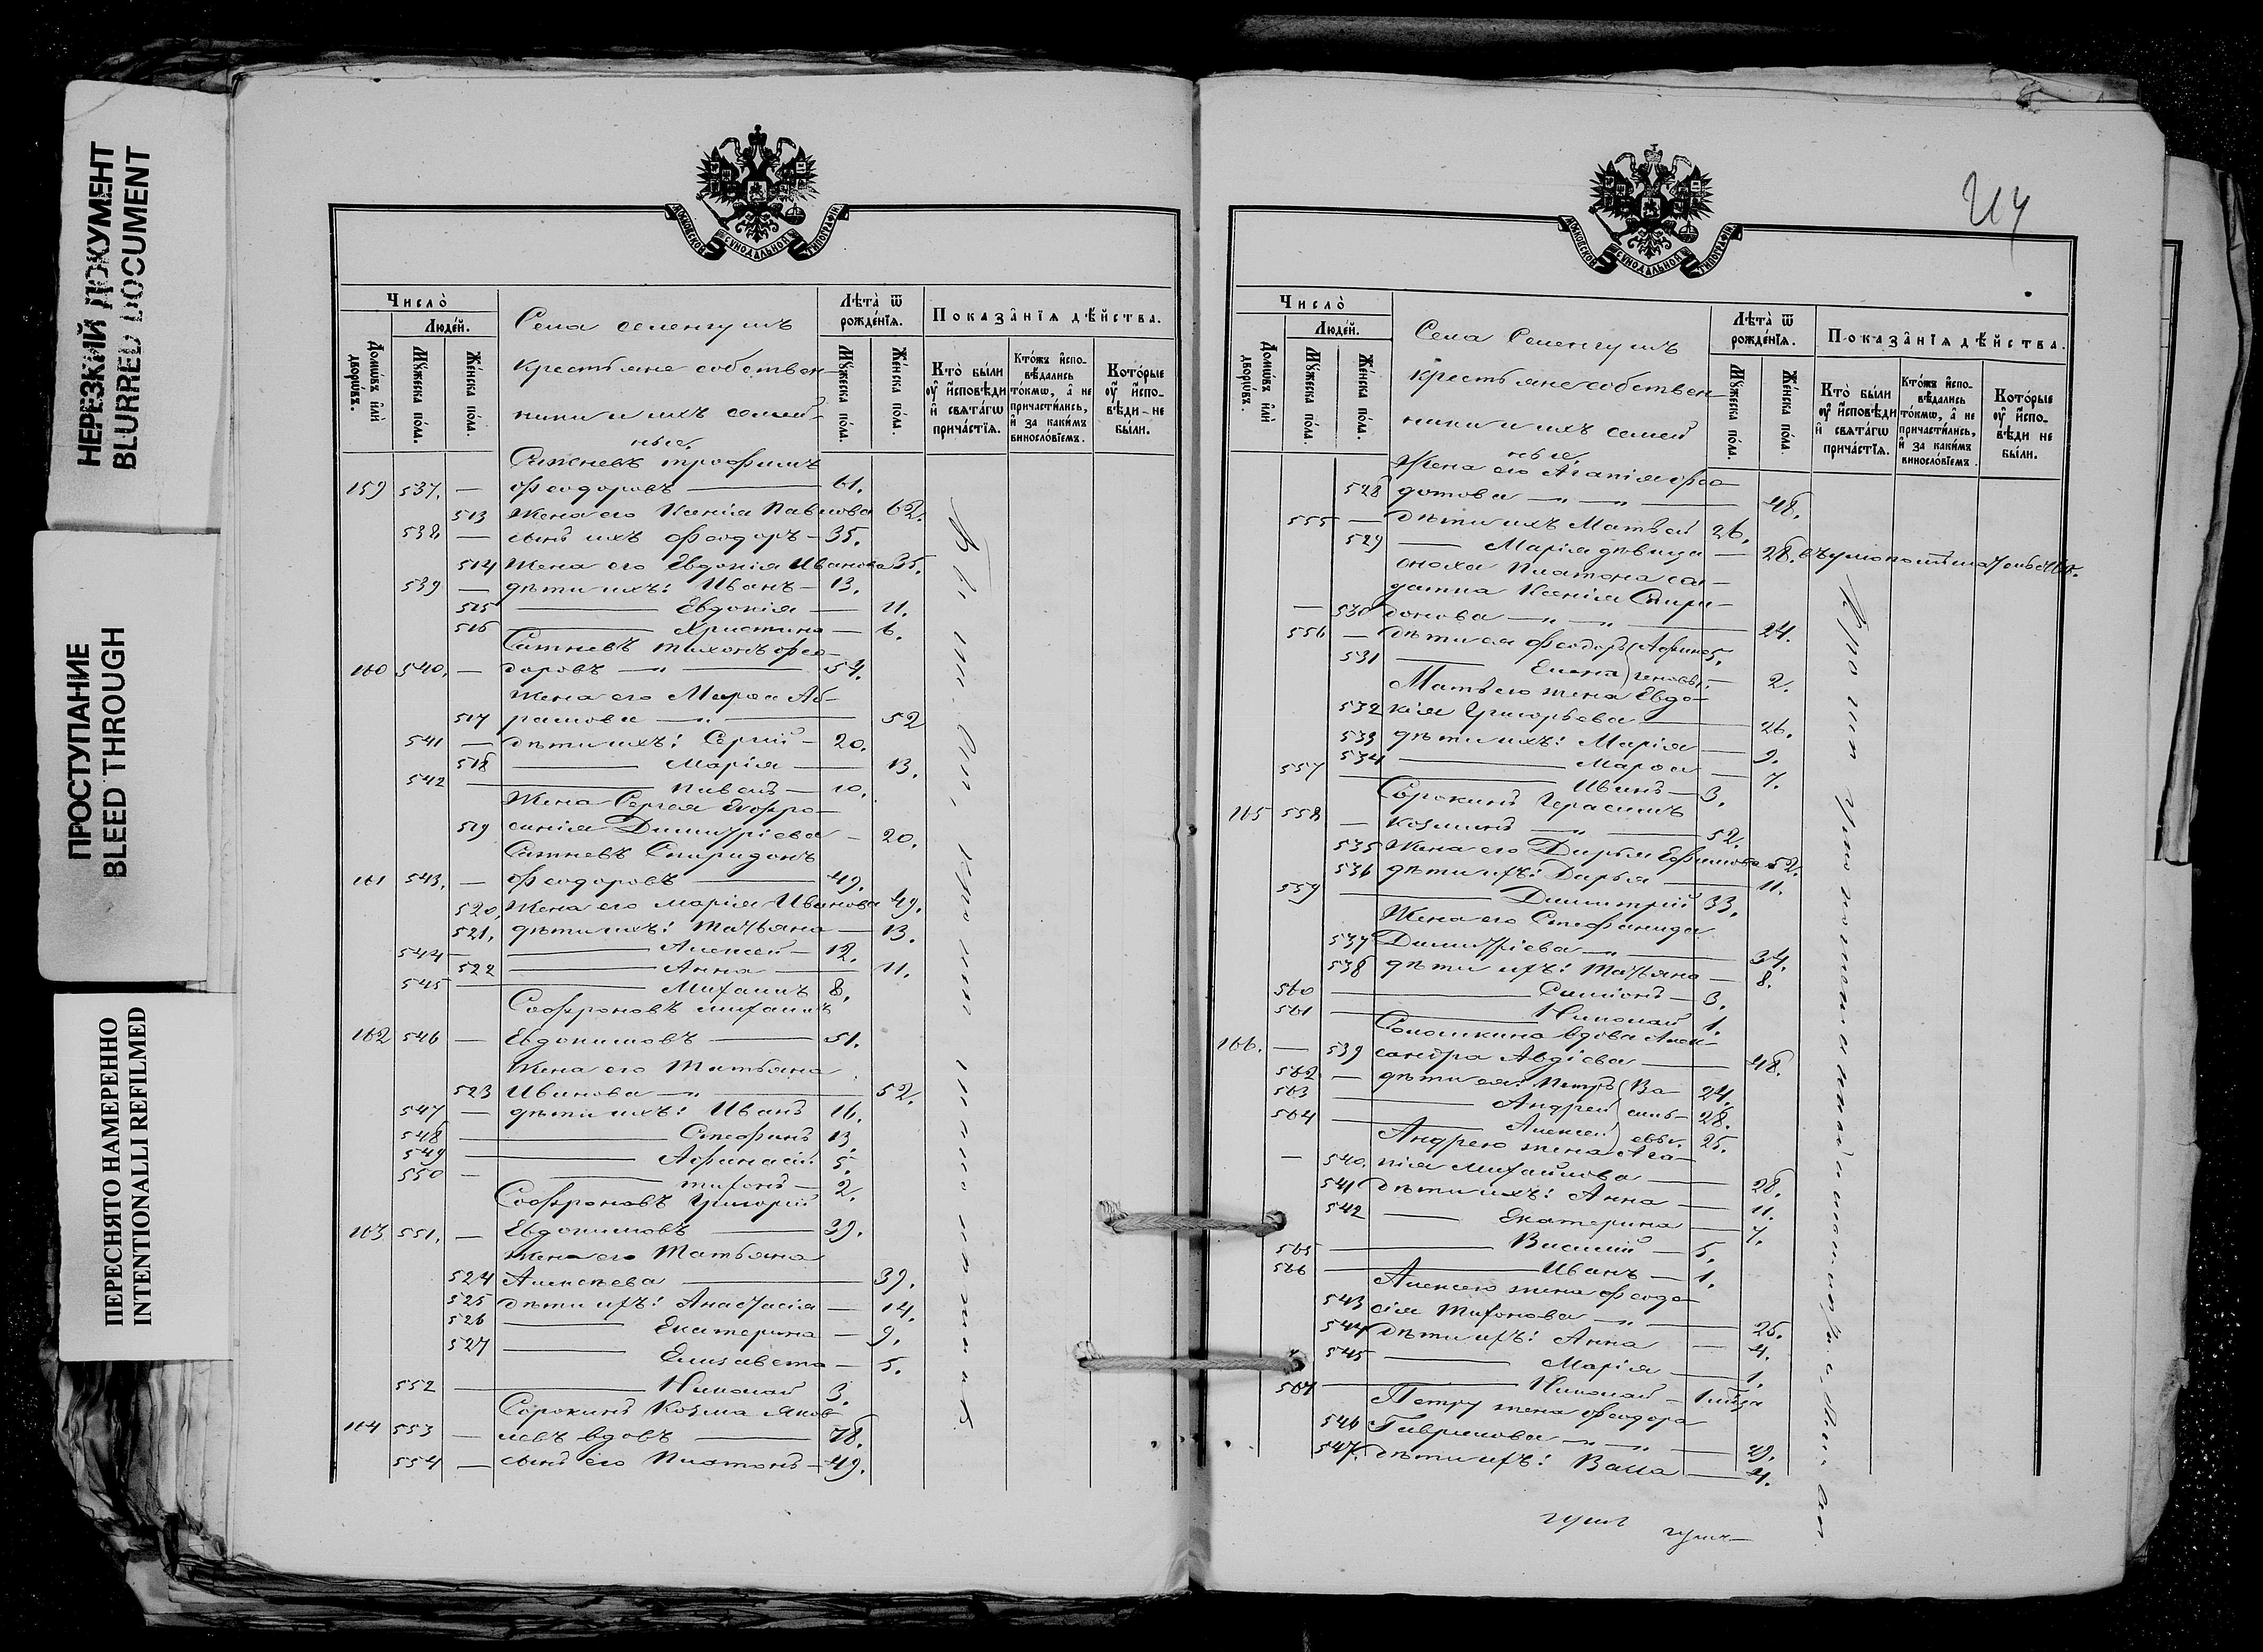 НЕРЕЗКИЙ ДОКУМЕНТ
BLURRED DOCUMENT
ПРОСТУПАНИЕ
BLEED THROUGH
ПЕРЕСНЯТО НАМЕРЕННО
INTENTIONALLI REFILMED
МОСКОВСКОЙ СѴНОДАЛЬНОЙ ТИПОГРАФІИ
Число̀
Люде́й.
Домѡ́въ и҆лѝ дворѡ́въ.
Мꙋ́жеска по́ла.
Же́нска по́ла.
Села Селенгушъ
крестьяне собствен-
ники и ихъ семей-
ные
Лѣта̀ ѿ рожде́нїѧ.
Мꙋ́жеска по́ла.
Же́нска по́ла.
Показа̂нїѧ дѣ́йства.
Кто̀ бы́ли оу҆ и҆сповѣ́ди и҆ свѧта́гѡ прича́стїѧ.
Кто́жъ и҆спо-вѣ́дались то́кмѡ, а҆ не причасти́лись, и҆ за каки́мъ винослóвїемъ.
Кото́рые оу҆ и҆спо-вѣ́ди не бы́ли.
Ситневъ Трофимъ
159 537. — Ѳеодоровъ — 61.
513 Жена его Ксенія Павлова 62.
538 — сынъ ихъ Ѳеодоръ — 35.
514 Жена его Евдокія Иванова 35.
539 — дѣти ихъ: Иванъ — 13.
515 — Евдокія — 11.
516 — Христина — 6.
Ситневъ Тихонъ Ѳео-
160 540. — доровъ — „ — 54.
Жена его Марѳа Аб-
517 рамова — „ — 52
541 — дѣти ихъ: Сергій — 20.
518 — Марія — 13.
542 — Павелъ — 10.
Жена Сергея Ефро-
519 синія Димитріева — 20.
Ситневъ Спиридонъ
161 543. — Ѳеодоровъ — 49.
520. Жена его Марія Иванова 49.
521. дѣти ихъ: Татьяна — 13.
544 — Алексей — 12.
522 — Анна — 11.
545 — Михаилъ 8.
Софроновъ Михаилъ
162 546 — Евдокимовъ — 51.
Жена его Татьяна
523 Иванова — „ — 52.
547 — дѣти ихъ: Иванъ 16.
548 — Стефанъ 13.
549 — Афанасій 5.
550 — Тихонъ — 2.
Софроновъ Григорій
163 551. — Евдокимовъ — 39.
Жена его Татьяна
524 Алексѣева — 39.
525 дѣти ихъ: Анастасія — 14.
526 — Екатерина — 9.
527 — Елизавета — 5.
552 — Николай 3.
Сорокинъ Козма Яков-
164 553 — левъ вдовъ — 78.
554 — сынъ его Платонъ — 49.
МОСКОВСКОЙ СѴНОДАЛЬНОЙ ТИПОГРАФІИ
Число̀
Люде́й.
Домѡ́въ и҆лѝ дворѡ́въ.
Мꙋ́жеска по́ла.
Же́нска по́ла.
Села Селенгушъ
крестьяне собствен-
ники и ихъ семей
ные
Лѣта̀ ѿ рожде́нїѧ.
Мꙋ́жеска по́ла.
Же́нска по́ла.
Показа̂нїѧ дѣ́йства.
Кто̀ бы́ли оу҆ и҆сповѣ́ди и҆ свѧта́гѡ прича́стїѧ.
Кто́жъ и҆спо-вѣ́дались то́кмѡ, а҆ не причасти́лись, и҆ за каки́мъ винослóвїемъ.
Кото́рые оу҆ и҆спо-вѣ́ди не бы́ли.
Жена его Агапія Ѳео-
528 дотова — „ — „ — 48.
555 — дѣти ихъ Матвей 26.
529 — Марія дѣвица — 28.
сноха Платона сол-
датка Ксенія Спири-
— 530 донова — „ — „ — 24.
556 — дѣти ея Ѳеодоръ 5.
531 — Елена — 2.
Матвею жена Евдо-
532 кія Григорьева — 26.
533 дѣти ихъ: Марія — 9.
534 — Марѳа — 7.
557 — Иванъ — 3.
Сорокинъ Герасимъ
165 558 — Козминъ — „ — 52.
535 Жена его Дарья Ефимова 52.
536 дѣти ихъ: Дарья — 11.
559 — Димитрій 33.
Жена его Стефанида
537 Димитріева — „ — 34.
538 дѣти ихъ: Татьяна — 8.
560 — Симіонъ — 3.
561 — Николай 1.
вдова Алек-
166. — 539 сандра Авдіева — 48.
562 — дѣти ея: Петръ (Ва- 24.
563 — Андрей силь- 28.
564 — Алексей евы. 25.
Андрею жена Ага-
— 540. пія Михайлова — 28.
541 дѣти ихъ: Анна — 11.
542 — Екатерина — 7.
565 — Василій — 5.
566 — Иванъ — 1.
Алексею жена Ѳеодо-
543 сія Тихонова — „ — 25.
544 дѣти ихъ: Анна — 4.
545 — Марія — 1.
567 — Николай —
Петру жена Ѳеодора
546 Гаврилова — „ — „ — 29.
547. дѣти ихъ: Васса — 4.